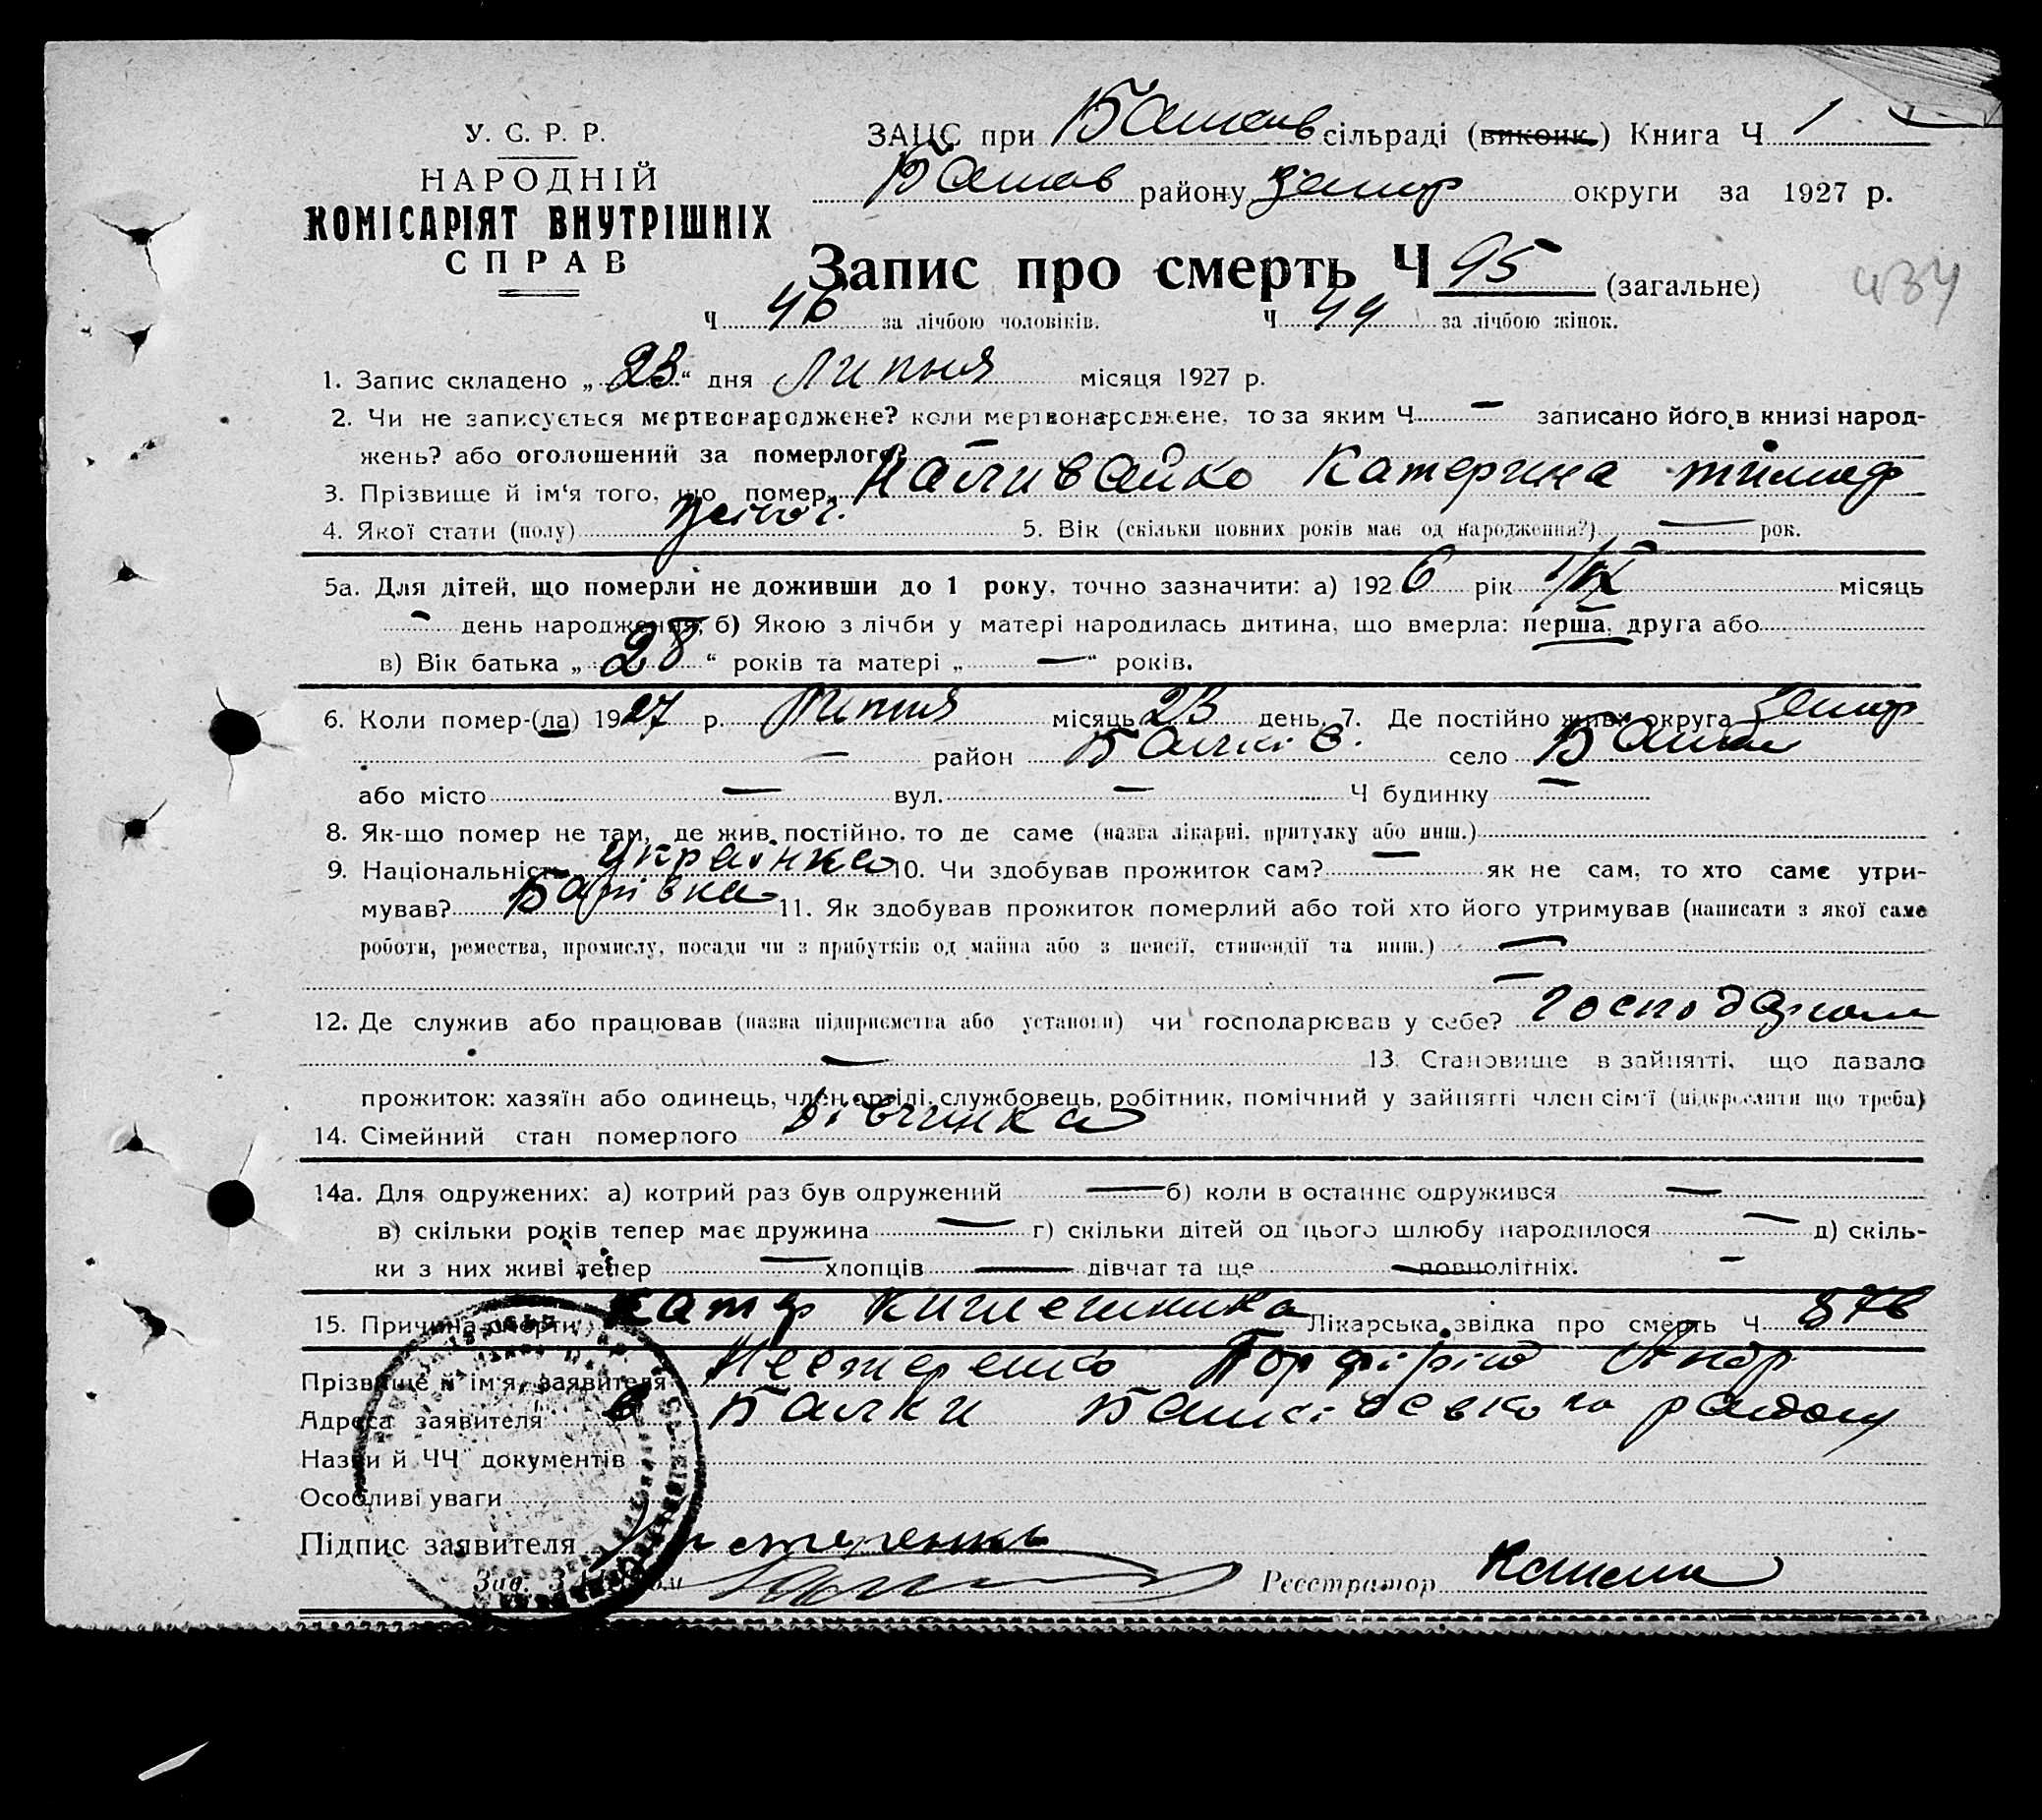 У. С. Р. Р.
НАРОДНІЙ
КОМІСАРІЯТ ВНУТРІШНІХ
СПРАВ
ЗАЦС при Балків сільраді (виконк.) Книга Ч 1
Балків району Запор округи за 1927 р.
Запис про смерть Ч 95 (загальне)
434
Ч 46 за лічбою чоловіків. Ч 49 за лічбою жінок.
1. Запис складено „ 23 “ дня Липня місяця 1927 р.
2. Чи не записується мертвонароджене? коли мертвонароджене, то за яким Ч — записано його в книзі народ-
жень? або оголошений за померлого? —
3. Прізвище й ім‘я того, що помер. Наливайко Катерина
4. Якої стати (полу) жіноч. 5. Вік (скільки повних років має од народження?) — рок.
5а. Для дітей, що померли не доживши до 1 року, точно зазначити: а) 1926 рік місяць
- день народження; б) Якою з лічби у матері народилась дитина, що вмерла: перша, друга або
в) Вік батька „ 28 “ років та матері „ — “ років.
6. Коли помер-(ла) 1927 р. Липня місяць 23 день. 7. Де постійно жив: округа Запор
— район Балків. село Балки
або місто — вул. — Ч будинку —
8. Як-що помер не там, де жив постійно, то де саме (назва лікарні, притулку або инш.)
9. Національність Українка 10. Чи здобував прожиток сам? — як не сам, то хто саме утри-
мував? Батівка 11. Як здобував прожиток померлий або той хто його утримував (написати з якої саме
роботи, ремества, промислу, посади чи з прибутків од майна або з пенсії, стипендії та инш.) —
—
12. Де служив або працював (назва підприємства або установи) чи господарював у себе?
— 13. Становище в зайнятті, що давало
прожиток: хазяїн або одинець, член артілі, службовець, робітник, помічний у зайнятті член сім‘ї (підкреслити що треба)
14. Сімейний стан померлого дівчинка
14а. Для одружених: а) котрий раз був одружений — б) коли в останнє одружився —
в) скільки років тепер має дружина — г) скільки дітей од цього шлюбу народилося — д) скіль-
ки з них живі тепер — хлопців — дівчат та ще — повнолітніх. -
15. Причина смерти Катар кишечника Лікарська звідка про смерть Ч 876
Прізвище й ім‘я заявителя Нестеренко Порфірій Андр
Адреса заявителя с Балки Балківського району
Назви й ЧЧ документів
Особливі уваги
Підпис заявителя Нестеренко
Зав. ЗАЦС‘ом Реєстратор